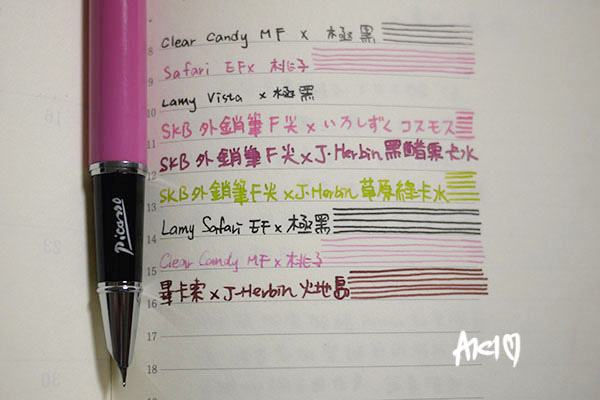 8
Clear Candy MF x 極黑
9
Safari EF x 桃子
10
Lamy Vista x 極黑
11
SKB 外銷筆 F尖 x いろしずく コスモス
12
SKB 外銷筆 F尖 x J. Herbin 黑醋栗卡水
SKB 外銷筆 F尖 x J. Herbin 草原綠卡水
13
Lamy Safari EF x 極黑
14
Clear Candy MF x 桃子
15
畢卡索 x J-Herbin 火地島
16
17
18
Picasso
AKI♡